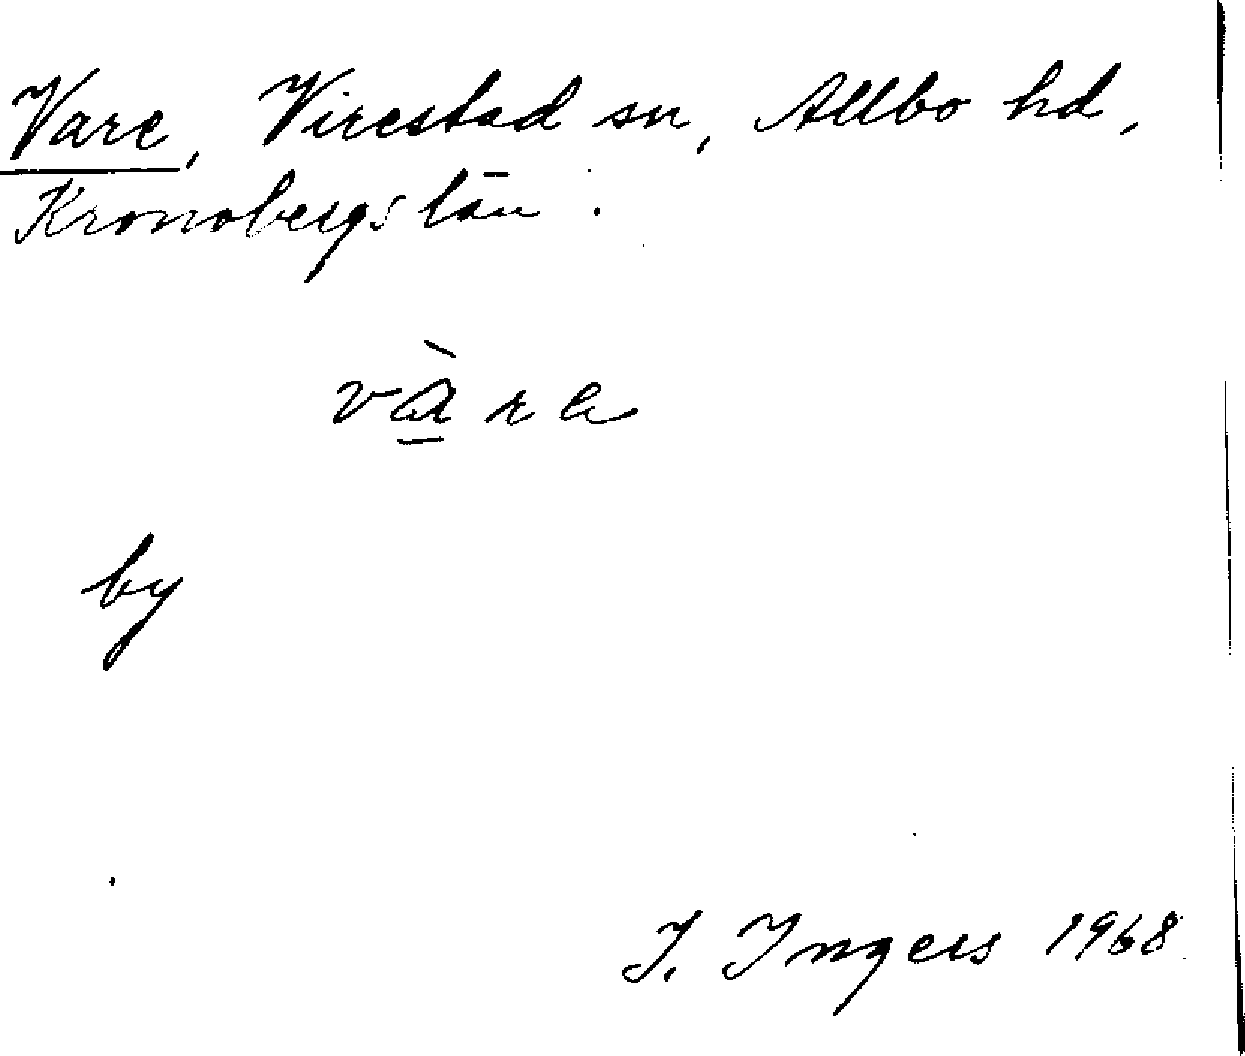 Vare, Virestad sn, Allbo hd,
Kronobergs län.
và̱ra
by
I. Ingers 1968